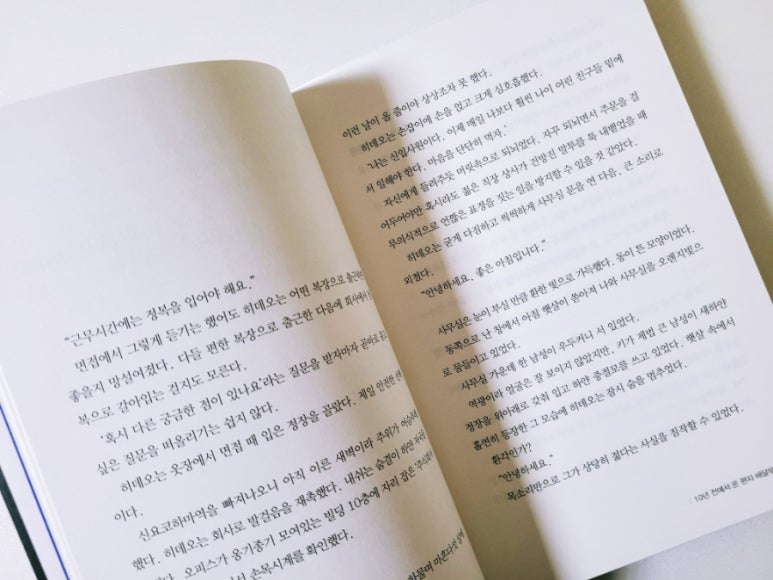 "근무시간에는 정복을 입어야 해요."
면접에서 그렇게 듣기는 했어도 히데오는 어떤 복장으로 출근해야
좋을지 망설여졌다. 다들 편한 복장으로 출근한 다음에 회사에서
복으로 갈아입는 건지도 모른다.
'혹시 다른 궁금한 점이 있나요'라는 질문을 받자마자 곧바로
싶은 질문을 떠올리기는 쉽지 않다.
히데오는 옷장에서 면접 때 입은 정장을 골랐다. 제일 안전한
이다.
신요코하마역을 빠져나오니 아직 이른 새벽이라 주위가
했다. 히데오는 회사로 발걸음을 재촉했다. 내쉬는 숨결이 하얀
오피스가 옹기종기 모여있는 빌딩 10층에 자리 잡은
서 손목시계를 확인했다.
이런 날이 올 줄이야 상상조차 못 했다.
히데오는 손잡이에 손을 얹고 크게 심호흡했다.
'나는 신입사원이다. 이제 매일 나보다 훨씬 나이 어린 친구들 밑에
서 일해야 한다. 마음을 단단히 먹자.'
자신에게 들려주듯 머릿속으로 되뇌었다. 자꾸 되뇌면서 주문을 걸
어두어야만 혹시라도 젊은 직장 상사가 건방진 말투를 툭 내뱉었을 때
무의식적으로 언짢은 표정을 짓는 일을 방지할 수 있을 것 같았다.
히데오는 굳게 다짐하고 씩씩하게 사무실 문을 연 다음, 큰 소리로
외쳤다.
"안녕하세요, 좋은 아침입니다."
사무실은 눈이 부실 만큼 환한 빛으로 가득했다. 동이 튼 모양이었다.
동쪽으로 난 창에서 아침 햇살이 쏟아져 나와 사무실을 오렌지빛으
로 물들이고 있었다.
사무실 가운데 한 남성이 우두커니 서 있었다.
역광이라 얼굴은 잘 보이지 않았지만, 키가 제법 큰 남성이 새하얀
정장을 위아래로 갖춰 입고 하얀 중절모를 쓰고 있었다. 햇살 속에서
홀연히 등장한 그 모습에 히데오는 잠시 숨을 멈추었다.
환각인가?
"안녕하세요."
목소리만으로 그가 상당히 젊다는 사실을 짐작할 수 있었다.
: 10년 전에서 온 편지 배달